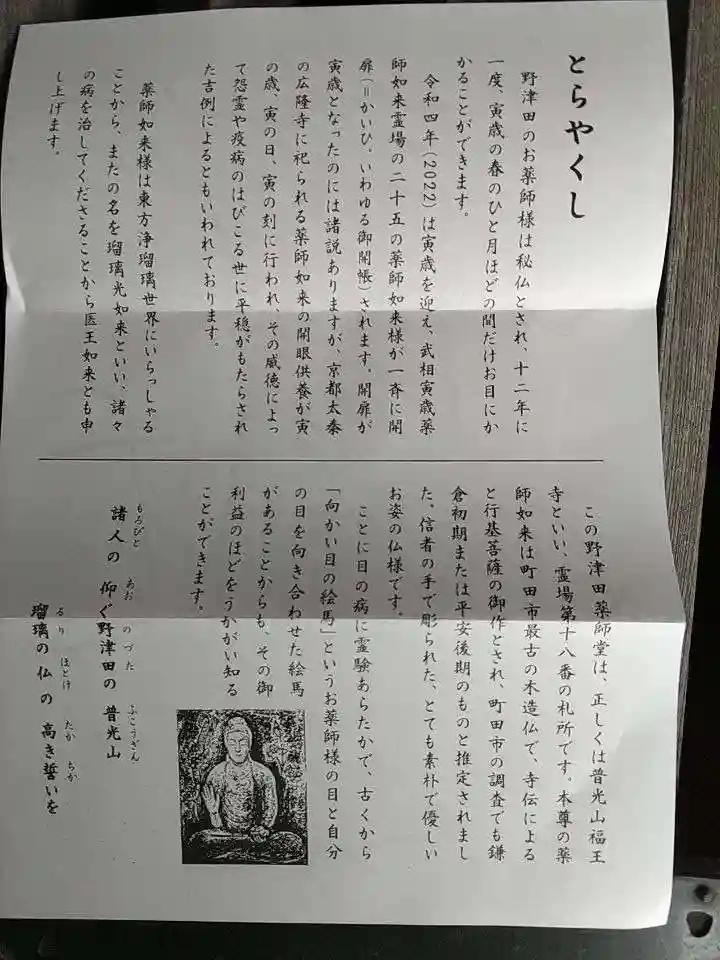 とらやくし
野津田のお薬師様は秘仏とされ、十二年に
一度、寅歳の春のひと月ほどの間だけお目にか
かることができます。
令和四年(2022)は寅歳を迎え、武相寅歳薬
師如来霊場の二十五の薬師如来様が一斉に開
扉(=かいひ。いわゆる御開帳)されます。開扉が
寅歳となったのには諸説ありますが、京都太秦
の広隆寺に祀られる薬師如来の開眼供養が寅
の歳、寅の日、寅の刻に行われ、その威徳によっ
て怨霊や疫病のはびこる世に平穏がもたらされ
た吉例によるともいわれております。
薬師如来様は東方浄瑠璃世界にいらっしゃる
ことから、またの名を瑠璃光如来といい、諸々
の病を治してくださることから医王如来とも申
し上げます。
この野津田薬師堂は、正しくは普光山福王
寺といい、霊場第十八番の札所です。本尊の薬
師如来は町田市最古の木造仏で、寺伝による
と行基菩薩の御作とされ、町田市の調査でも鎌
倉初期または平安後期のものと推定されまし
た。信者の手で彫られた、とても素朴で優しい
お姿の仏様です。
ことに目の病に霊験あらたかで、古くから
「向かい目の絵馬」というお薬師様の目と自分
の目を向き合わせた絵馬
があることからも、その御
利益のほどをうかがい知る
ことができます。
もろびと あお のづた ふこうざん
諸人の 仰ぐ野津田の 普光山
るり ほとけ たか ちか
瑠璃の 仏の 高き誓いを